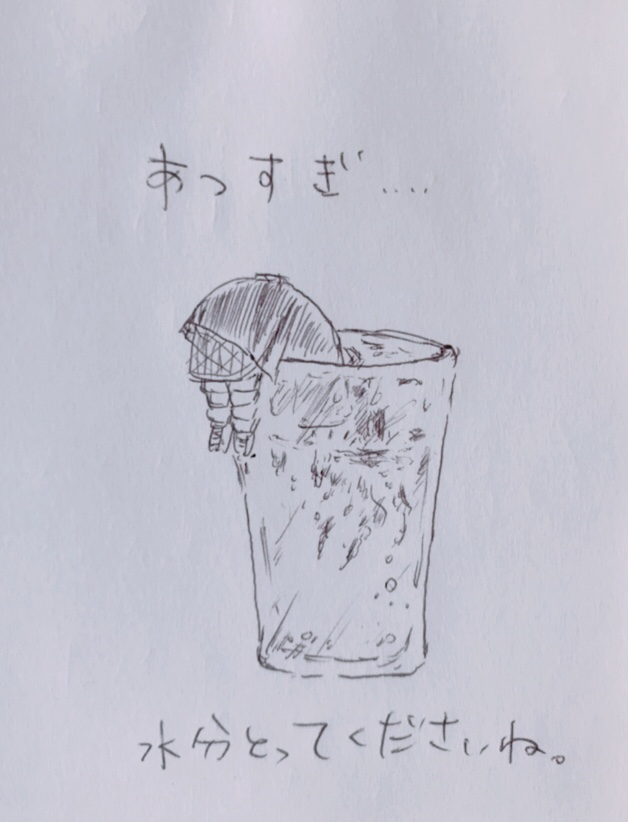 あつすぎ....
水分とってくださいね。